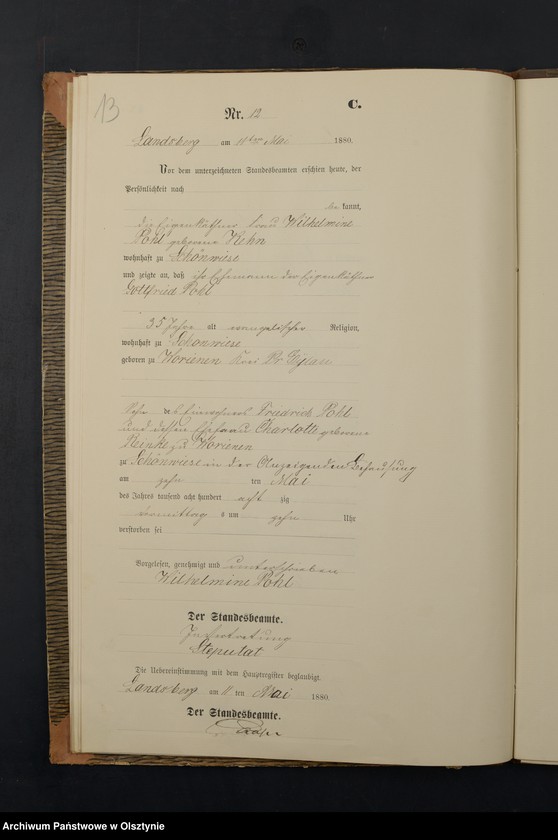 13
C.
Nr. 12
Landsberg am 11ten Mai 1880.
Vor dem unterzeichneten Standesbeamten erschien heute, der
Persönlichkeit nach
be kannt,
die Eigenkäthner Frau Wilhelmine
Pohl geborene Hehn
wohnhaft zu Schönwiese
und zeigte an, daß ihr Ehemann der Eigenkäthner
Gottfried Pohl
35 Jahre alt evangelischer Religion,
wohnhaft zu Schönwiese
geboren zu Worienen Kreis Pr. Eylau
Sohn des Einwohners Friedrich Pohl
und dessen Ehefrau Charlotte geborene
Reinke zu Worienen
zu Schönwiese in der Anzeigenden Behausung
am zehn ten Mai
des Jahres tausend acht hundert acht zig
Vormittag s um zehn Uhr
verstorben sei
Vorgelesen, genehmigt und unterschrieben
Wilhelmine Pohl
Der Standesbeamte.
In Vertretung
Steputat
Die Uebereinstimmung mit dem Hauptregister beglaubigt.
Landsberg am 11 ten Mai 1880.
Der Standesbeamte.
Archiwum Państwowe w Olsztynie